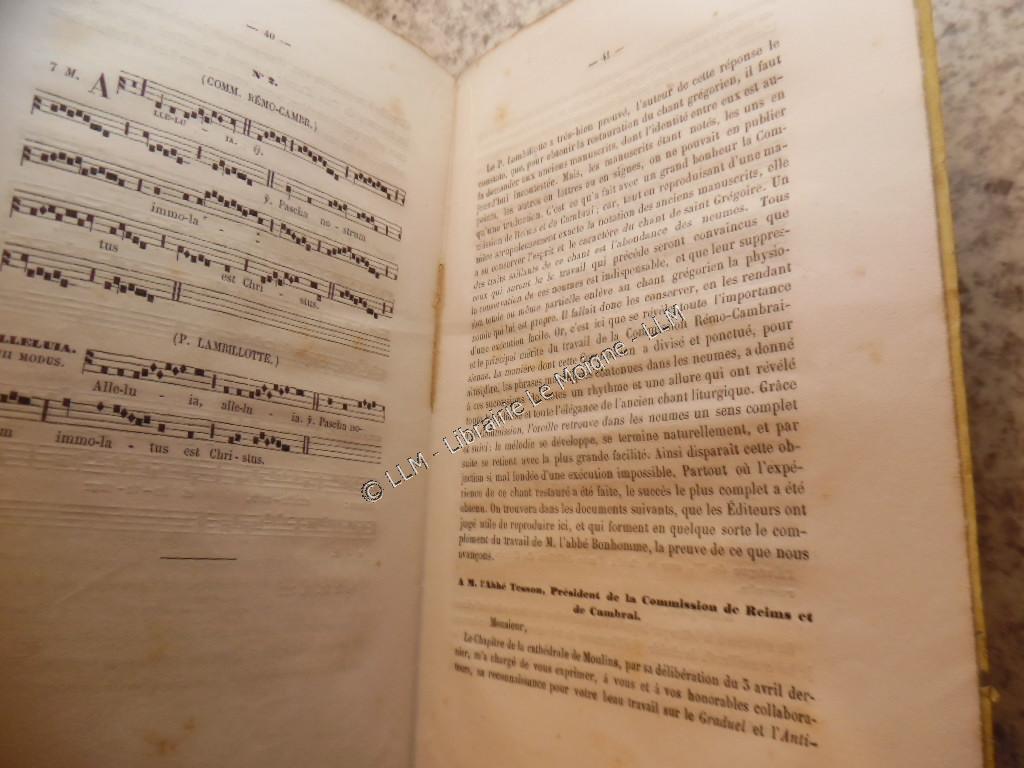 — 40 —
N° 2.
(COMM. RÉMO-CAMBR.)
7 M. A
LLE-LU - IA. ℣.
℣. Pascha no - strum
immola -
tus est Chri - sus.
(P. LAMBILLOTTE.)
LLELUIA.
II MODUS.
Alle-lu - ia, allelu - ia. ℣. Pascha no-
m immola - tus est Chri-stus.
— 41 —
Le P. Lambillotte a très-bien prouvé, l'auteur de cette réponse le
constate, que, pour obtenir la restauration du chant grégorien, il faut
la demander aux anciens manuscrits, dont l'identité entre eux est au-
jourd'hui incontestée. Mais, les manuscrits étant notés, les uns en
points, les autres en lettres ou en signes, on ne pouvait en publier
qu'une traduction. C'est ce qu'a fait avec un grand honneur la Com-
mission de Reims et de Cambrai; car, tout en reproduisant d'une ma-
nière scrupuleusement exacte la notation des anciens manuscrits, elle
a su conserver l'esprit et le caractère du chant de saint Grégoire. Un
des traits saillants de ce chant est l'abondance des neumes. Tous
ceux qui auront lu le travail qui précède seront convaincus que
la conservation de ces neumes est indispensable, et que leur suppres-
sion totale ou même partielle enlève au chant grégorien la physio-
nomie qui lui est propre. Il fallait donc les conserver, en les rendant
d'une exécution facile. Or, c'est ici que se révèle toute l'importance
et le principal mérite du travail de la Commission Rémo-Cambrai-
sienne. La manière dont cette a divisé et ponctué, pour
ainsi dire, les phrases contenues dans les neumes, a donné
à ces successions de notes un rhythme et une allure qui ont révélé
toute et toute l'élégance de l'ancien chant liturgique. Grâce
Commission, l'oreille retrouve dans les neumes un sens complet
et suivi; la mélodie se développe, se termine naturellement, et par
suite se retient avec la plus grande facilité. Ainsi disparaît cette ob-
jection si mal fondée d'une exécution impossible. Partout où l'expé-
rience de ce chant restauré a été faite, le succès le plus complet a été
obtenu. On trouvera dans les documents suivants, que les Éditeurs ont
jugé utile de reproduire ici, et qui forment en quelque sorte le com-
plément du travail de M. l'abbé Bonhomme, la preuve de ce que nous
avançons.
A M. l'Abbé Tesson, Président de la Commission de Reims et
de Cambrai.
Monsieur,
Le Chapitre de la cathédrale de Moulins, par sa délibération du 3 avril der-
nier, m'a chargé de vous exprimer, à vous et à vos honorables collabora-
teurs, sa reconnaissance pour votre beau travail sur le Graduel et l'Anti-
© LLM - Librairie Le Molone - LLM